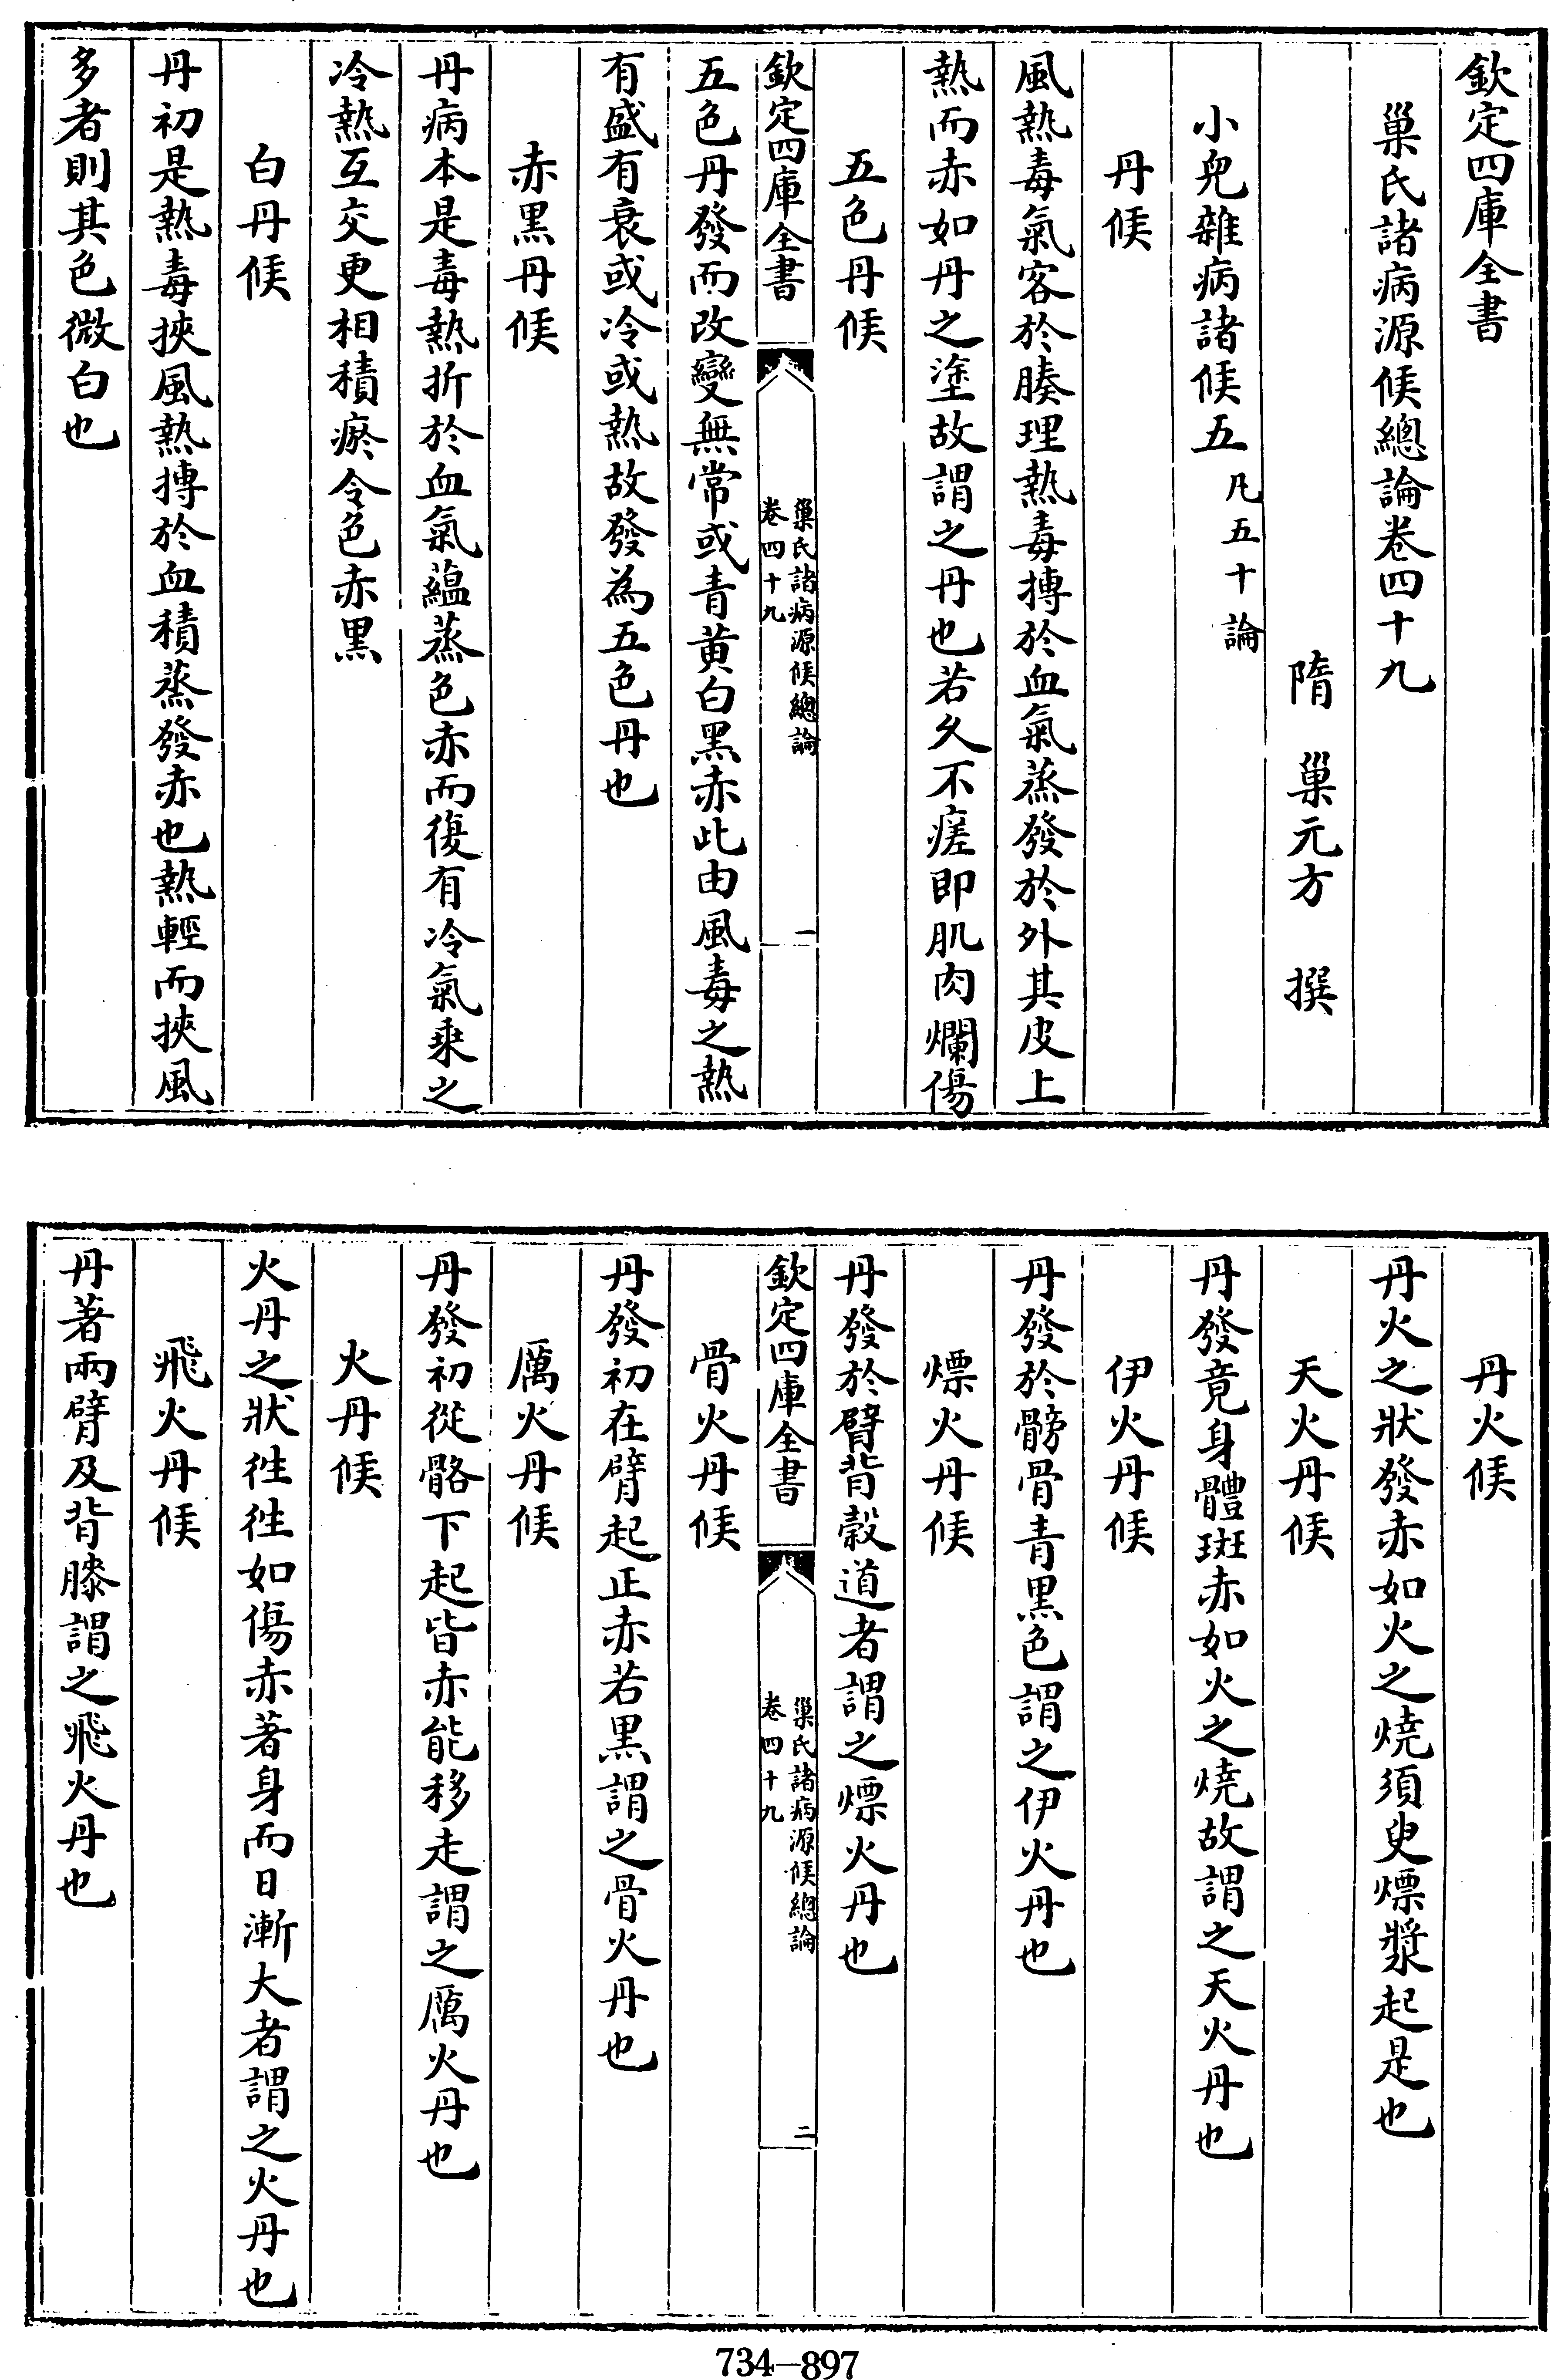 欽定四庫全書
巢氏諸病源候總論卷四十九
隋 巢元方 撰
小兒雜病諸候五 凡五十論
丹候
風熱毒氣客於腠理熱毒搏於血氣蒸發於外其皮上
熱而赤如丹之塗故謂之丹也若久不瘥即肌肉爛傷
五色丹候
欽定四庫全書
巢氏諸病源候總論
卷四十九
一
五色丹發而改變無常或青黄白黑赤此由風毒之熱
有盛有衰或冷或熱故發為五色丹也
赤黑丹候
丹病本是毒熱折於血氣蘊蒸色赤而復有冷氣乗之
冷熱互交更相積瘀令色赤黑
白丹候
丹初是熱毒挾風熱搏於血積蒸發赤也熱輕而挾風
多者則其色微白也
丹火候
丹火之狀發赤如火之燒須臾熛漿起是也
天火丹候
丹發竟身體斑赤如火之燒故謂之天火丹也
伊火丹候
丹發於髈骨青黑色謂之伊火丹也
熛火丹候
丹發於臂背穀道者謂之熛火丹也
欽定四庫全書
巢氏諸病源候總論
卷四十九
二
骨火丹候
丹發初在臂起正赤若黑謂之骨火丹也
厲火丹候
丹發初從髂下起皆赤能移走謂之厲火丹也
火丹候
火丹之狀徃徃如傷赤著身而日漸大者謂之火丹也
飛火丹候
丹著兩臂及背膝謂之飛火丹也
734—897